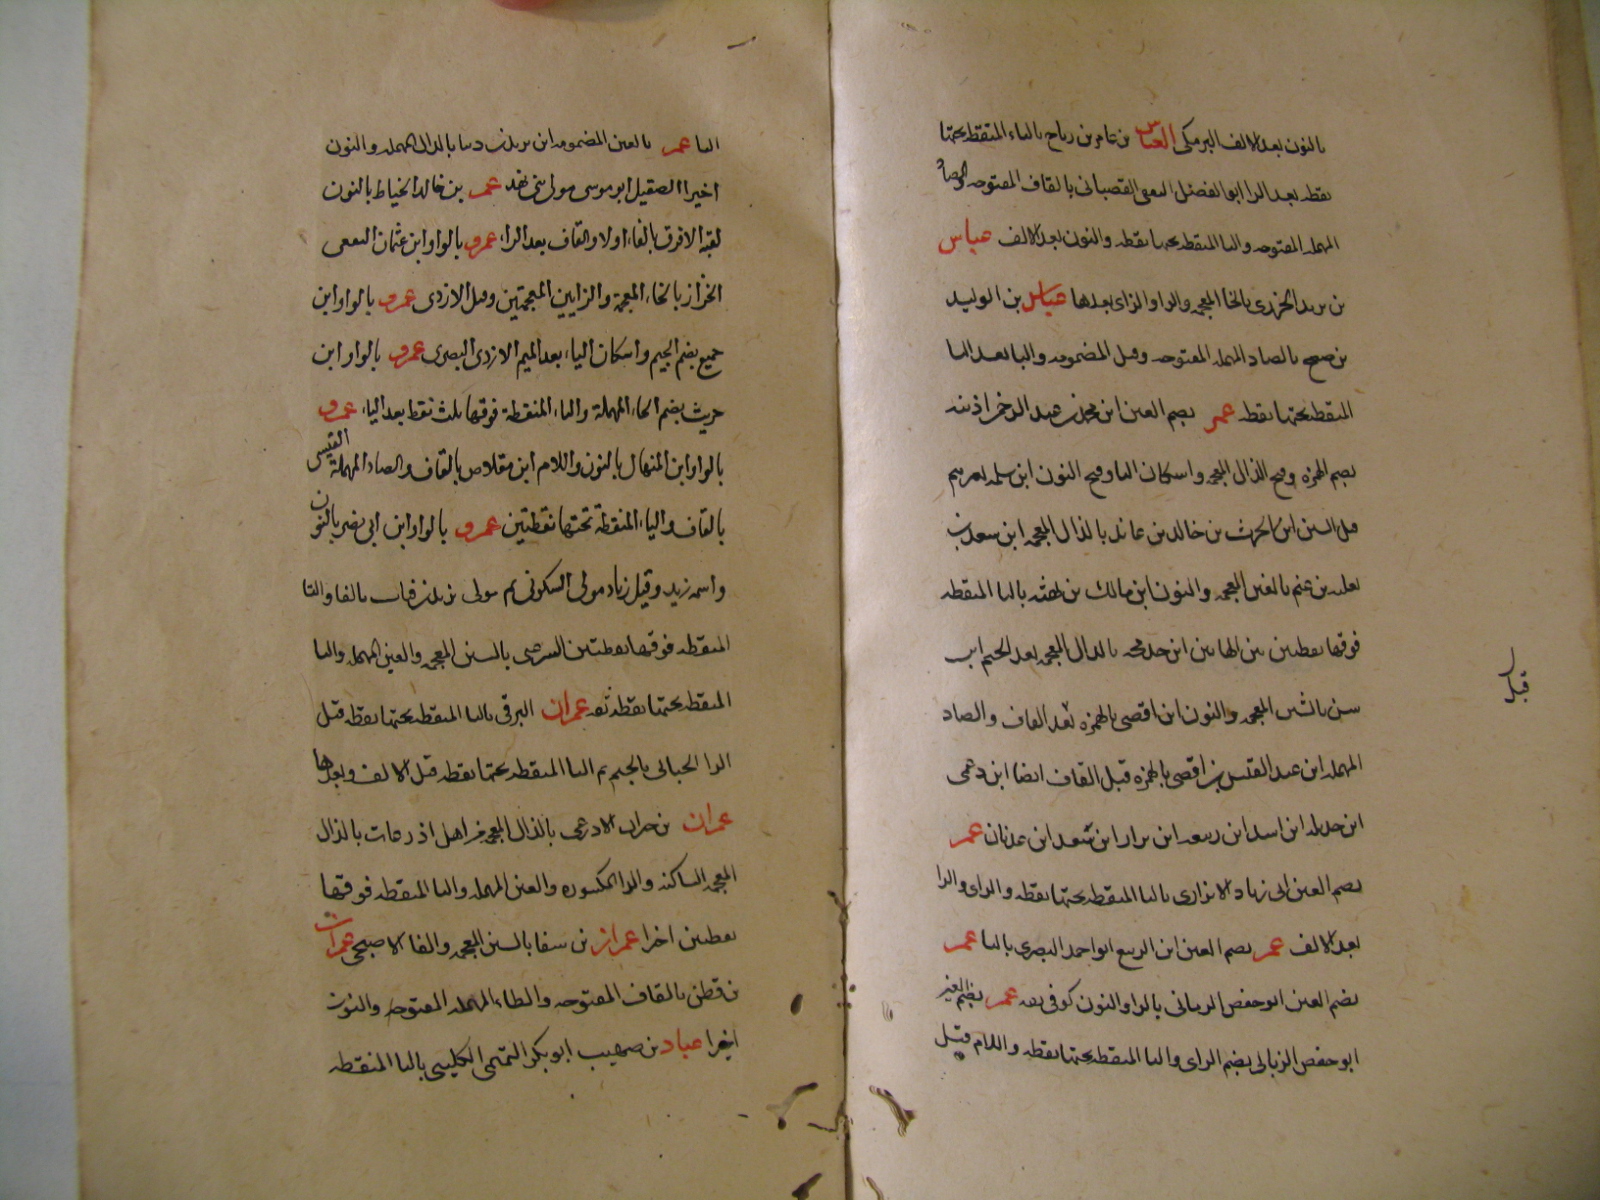 بالنون بعد الالف البرمكي العباس بن عامر بن رباح بالباء المنقطه تحتها
نقطه بعد الرا ابو الفضل القصباني بالقاف المفتوحه والصاد
المهمله المفتوحه والبا المنقطه تحتها نقطه والنون بعد الالف عباس
بن يزيد الخرزي بالخا المعجمه والرا والزاي بعدها عباس بن الوليد
بن صبيح بالصاد المهمله المفتوحه وقيل المضمومه والبا بعد اليا
المنقطه تحتها نقطه عمر بضم العين ابن محمد بن عبد الرحمن اذينه
بضم الهمزه وفتح الذال المعجمه واسكان اليا وفتح النون ابن سلمه
ابن الحرث بن خالد بن عائذ بالذال المعجمه ابن سعد بن
ثعلبه بن غنم بالغين المعجمه والنون ابن مالك بن بهثه بالبا المنقطه
فوقها نقطتين بين الهائين ابن جذيمه بالذال المعجمه بعد الجيم ابن
شن بالشين المعجمه والنون ابن افصى بالهمزه بعد الفاف والصاد
المهمله ابن عبد القيس بن افصى بالهمزه قبل القاف ايضا ابن دعمى
ابن جديله ابن اسد ابن ربيعه ابن نزار ابن معد ابن عدنان عمر
بضم العين ابى زياد الابزاري بالبا المنقطه تحتها نقطه والزاي والرا
بعد الالف عمر بضم العين ابن الربيع ابو احمد البصري بالبا عمر
بضم العين ابو حفص الرماني بالرا والنون كوفي ثقه عمر بضم العين
ابو حفص الزبالى بضم الزاى والبا المنقطه تحتها نقطه واللام قبل
قبل
اليا عمر بالعين المضمومه ابن دينا بالدال المهمله والنون
اخيرا الصقيل ابو موسى مولى بني نهد عمر بن خالد الخياط بالنون
لقبه الافرق بالفاء اولا والقاف بعد الراء عمرو بالواو ابن عثمان الثقفى
الخزاز بالخاء المعجمة والزايين المعجمتين وقيل الازدى عمرو بالواو ابن
جميع بضم الجيم واسكان الياء بعد الميم الازدى البصرى عمرو بالواو ابن
حريث بضم الحاء المهملة والثاء المنقطة فوقها ثلث نقط بعد الياء عمرو
بالواو ابن المنهال بالنون واللام ابن مقلاص بالقاف والصاد المهملة القيسى
بالقاف والياء المنقطة تحتها نقطتين عمرو بالواو ابن ابى نصر بالنون
واسمه زيد وقيل زياد مولى السكونى ثم مولى يزيد بن فرات بالفا والتا
المنقطه فوقها نقطتين الشرعبى بالشين المعجمه والعين المهمله والبا
المنقطه تحتها نقطه ثقه عمران البرقى بالبا المنقطه تحتها نقطه قبل
الرا الجبانى بالجيم ثم البا المنقطه تحتها نقطه قبل الالف وبعدها
عمران بن حمران الاذرعى بالذال المعجمه من اهل اذرعات بالذال
المعجمه الساكنه والرا المكسوره والعين المهمله والتا المنقطه فوقها
نقطتين اخرا عمران بن شفا بالشين المعجمه والفا الاصبحى عمران
بن قطن بالقاف المفتوحه والطاء المهمله المفتوحه والنون
اخيرا عباد بن صهيب ابو بكر التميمى الكليبى بالبا المنقطه